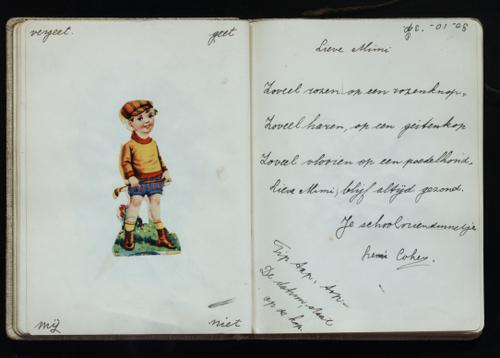 vergeet.
geet
mij
niet
30-10-38
Lieve Mimi
Zooveel rozen op een rozenknop,
Zooveel haren, op een geitenkop
Zooveel vlooien op een poedelhond,
Lieve Mimi, blijf altijd gezond.
Je schoolvriendinnetje
Cohen.
Tip tap, top
De datum staat
op de kop